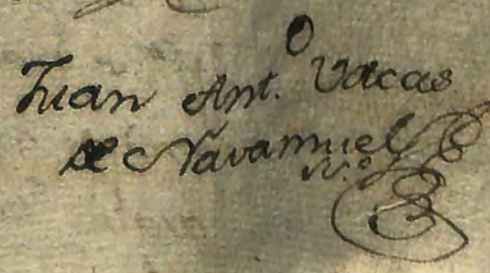 Juan Ant.º Vacas
de Navamuel
N.º